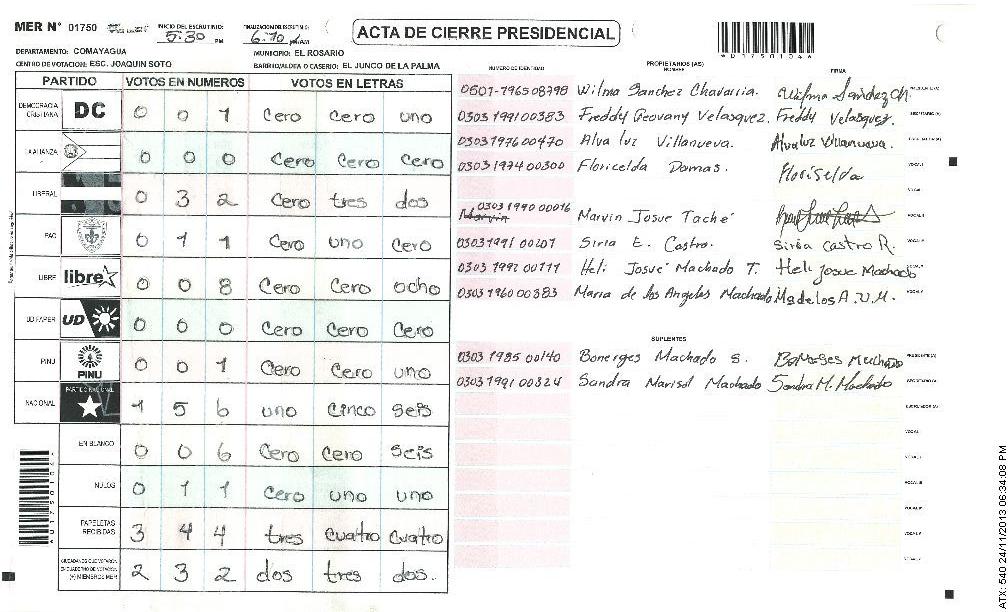 MER N° 01750 INICIO DEL ESCRUTINIO: 5:30 PM FINALIZACION DEL ESCRUTINIO: 6:10
ACTA DE CIERRE PRESIDENCIAL
DEPARTAMENTO: COMAYAGUA MUNICIPIO: EL ROSARIO
CENTRO DE VOTACION: ESC. JOAQUIN SOTO BARRIO/ALDEA O CASERIO: EL JUNCO DE LA PALMA
PARTIDO VOTOS EN NUMEROS VOTOS EN LETRAS
DEMOCRACIA CRISTIANA DC 0 0 1 Cero Cero uno
LA ALIANZA 0 0 0 Cero Cero Cero
LIBERAL 0 3 2 Cero tres dos
PAC 0 1 1 Cero uno Cero
LIBRE libre 0 0 8 Cero Cero ocho
UD FAPER UD 0 0 0 Cero Cero Cero
PINU PINU 0 0 1 Cero Cero uno
NACIONAL PARTIDO NACIONAL 1 5 6 uno Cinco seis
EN BLANCO 0 0 6 Cero Cero seis
NULOS 0 1 1 Cero uno uno
PAPELETAS RECIBIDAS 3 4 4 tres cuatro cuatro
CIUDADANOS QUE VOTARON EN CUADERNO DE VOTACION (+) MIEMBROS MER 2 3 2 dos tres dos.
NUMERO DE IDENTIDAD PROPIETARIOS (AS) NOMBRE FIRMA
0501-1965 08798 Wilma Sanchez Chavarria. Wilma Sanchez Ch
0303 1991 00383 Freddy Geovany Velasquez. Freddy Velasquez. SECRETARIO (A)
0303 1976 00470 Alva luz Villanueva. Alvaluz Villanueva.
0303 1974 00300 Floricelda Damas. Floriselda VOCAL I
VOCAL II
Marvin 0303 1990 00016 Marvin Josue Taché
0303 1991 00207 Siria E. Castro. Siria castro R.
0303 1992 00111 Heli Josué Machado T. Heli Josue Machado
0303 1960 00383 Maria de los Angeles Machado Ma delos A. V. M.
SUPLENTES
0303 1985 00140 Bonerges Machado S. Bonerges Machado PRESIDENTE (A)
0303 1991 00324 Sandra Marisol Machado Sandra M. Machado SECRETARIO (A)
ESCRUTADOR (A)
VOCAL I
VOCAL II
VOCAL III
VOCAL IV
VOCAL V
ATX: 540 24/11/2013 06:34:08 PM